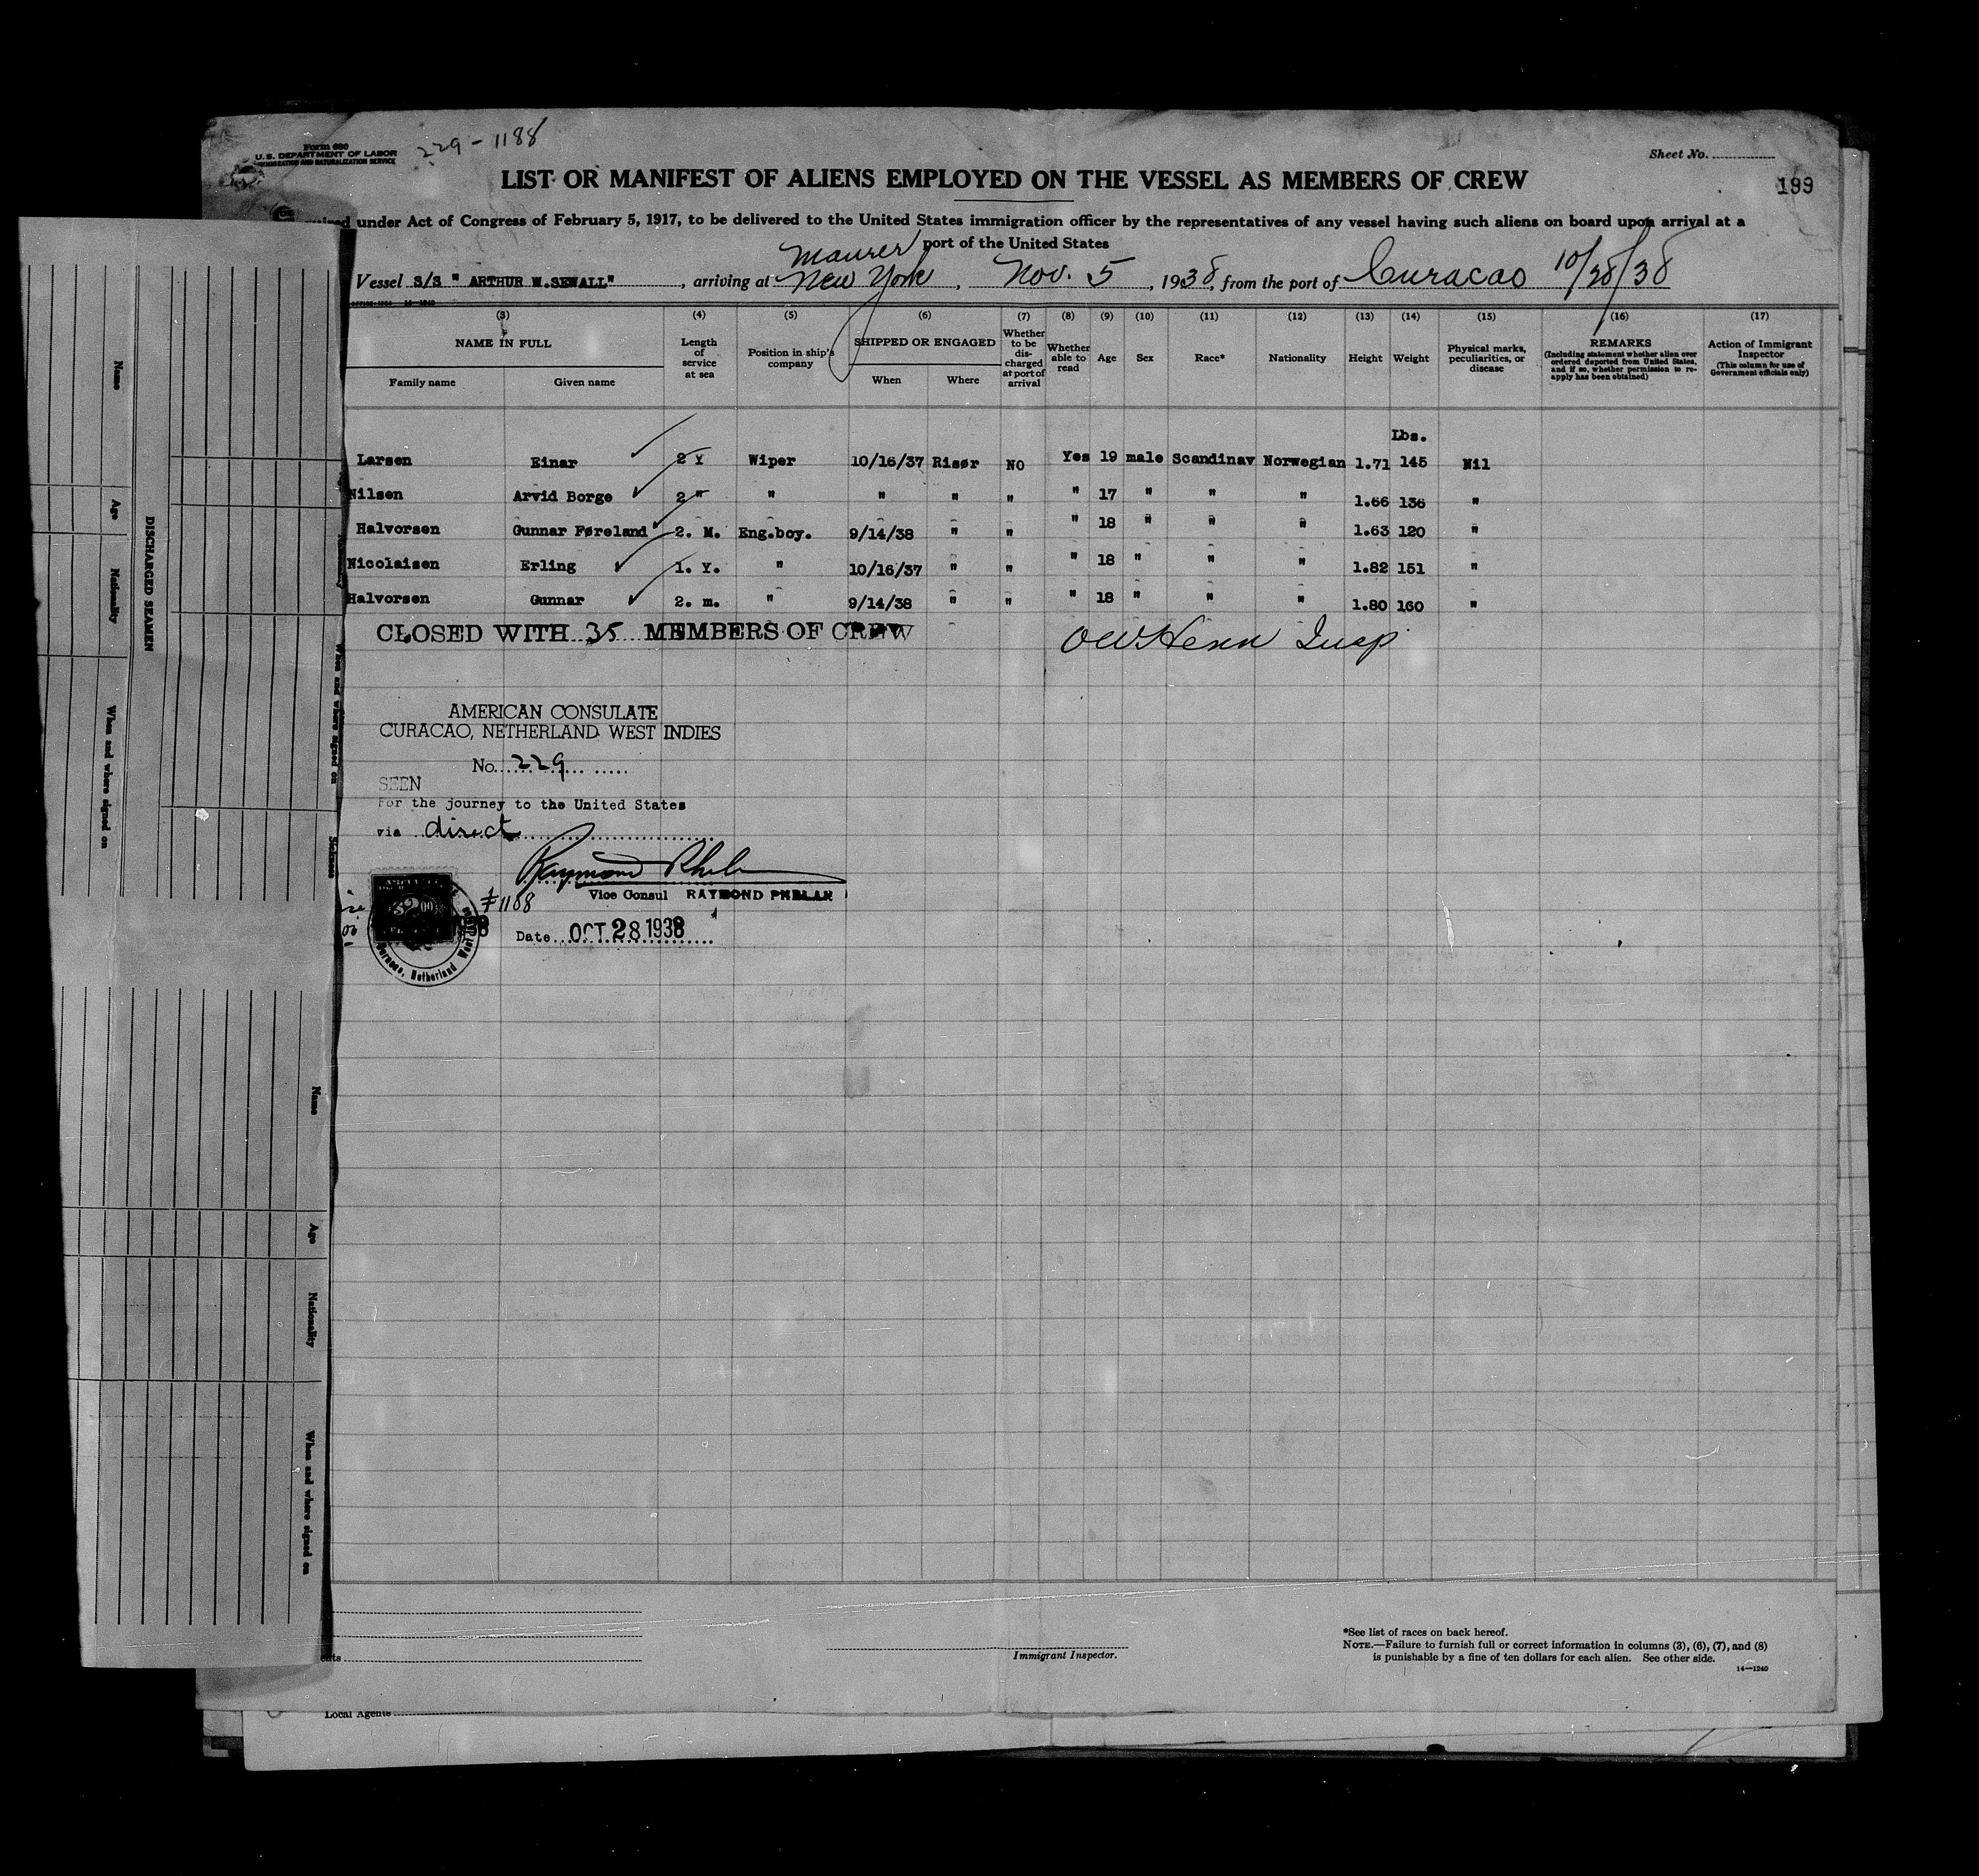 Form 680
U.S. DEPARTMENT OF LABOR
IMMIGRATION AND NATURALIZATION SERVICE
229-1188
Sheet No.
199
LIST OR MANIFEST OF ALIENS EMPLOYED ON THE VESSEL AS MEMBERS OF CREW
under Act of Congress of February 5, 1917, to be delivered to the United States immigration officer by the representatives of any vessel having such aliens on board upon arrival at a
port of the United States
Maurer
Vessel S/S " ARTHUR W.SEWALL" , arriving at New York , Nov. 5 , 1938, from the port of Curacao 10/28/38
(3) (4) (5) (6) (7) (8) (9) (10) (11) (12) (13) (14) (15) (16) (17)
NAME IN FULL
Family name Given name
Length of service at sea
Position in ship's company
SHIPPED OR ENGAGED
When Where
Whether to be discharged at port of arrival
Whether able to read
Age
Sex
Race*
Nationality
Height
Weight
Physical marks, peculiarities, or disease
REMARKS
(Including statement whether alien ever ordered deported from United States, and if so, whether permission to reapply has been obtained)
Action of Immigrant Inspector
(This column for use of Government officials only)
Lbs.
Larsen Einar 2 Y Wiper 10/16/37 Risør NO Yes 19 male Scandinav Norwegian 1.71 145 Nil
Nilsen Arvid Borge 2 " " " " " " 17 " " " 1.66 136 "
Halvorsen Gunnar Føreland 2. M. Eng.boy. 9/14/38 " " " 18 " " " 1.63 120 "
Nicolaisen Erling 1. Y. " 10/16/37 " " " 18 " " " 1.82 151 "
Halvorsen Gunnar 2. m. " 9/14/38 " " " 18 " " " 1.80 160 "
CLOSED WITH 35 MEMBERS OF CREW
Insp
AMERICAN CONSULATE
CURACAO, NETHERLAND WEST INDIES
No. 229
SEEN
For the journey to the United States
via direct
Raymond Phelan
#1188
Vice Consul RAYMOND PHELAN
Date OCT 28 1938
Curacao, Netherland West
Name
Age
Nationality
When and where signed on
DISCHARGED SEAMEN
When and where signed on
Sickness
Name
Age
Nationality
When and where signed on
Immigrant Inspector.
*See list of races on back hereof.
NOTE.—Failure to furnish full or correct information in columns (3), (6), (7), and (8)
is punishable by a fine of ten dollars for each alien. See other side.
14—1240
Local Agents